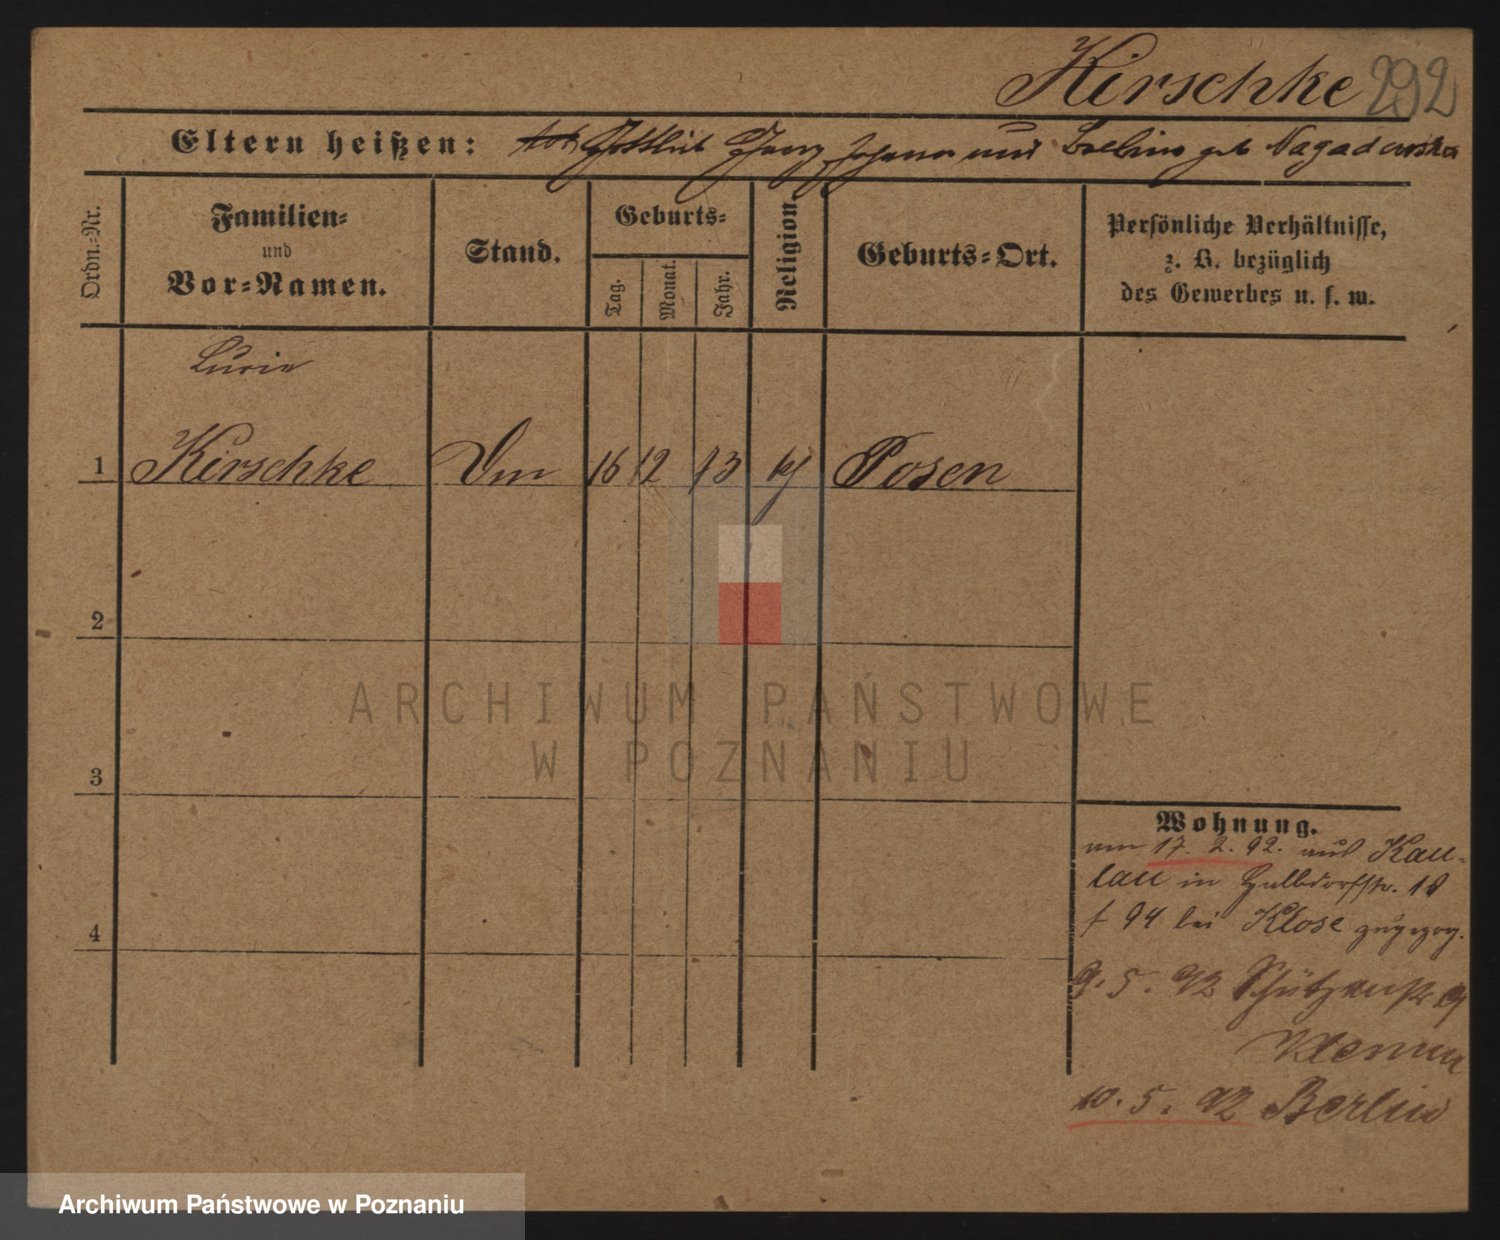 Kirschke 292
Eltern heißen: Gottlieb Franz Johann und geb Nagadowska
Ordn.-Nr.
Familien-
und
Vor-Namen.
Stand.
Geburts-
Tag.
Monat.
Jahr.
Religion.
Geburts-Ort.
Persönliche Verhältnisse,
z. B. bezüglich
des Gewerbes u. s. w.
1 Kirschke 16 12 73 Posen
2
3
4
Wohnung.
am 17. 2. 92. aus Kau-
lau in 18
94 bei Klose zugezog.
9. 5. 92 Schützenstr
10. 5. 92 Berlin
ARCHIWUM PAŃSTWOWE
W POZNANIU
Archiwum Państwowe w Poznaniu